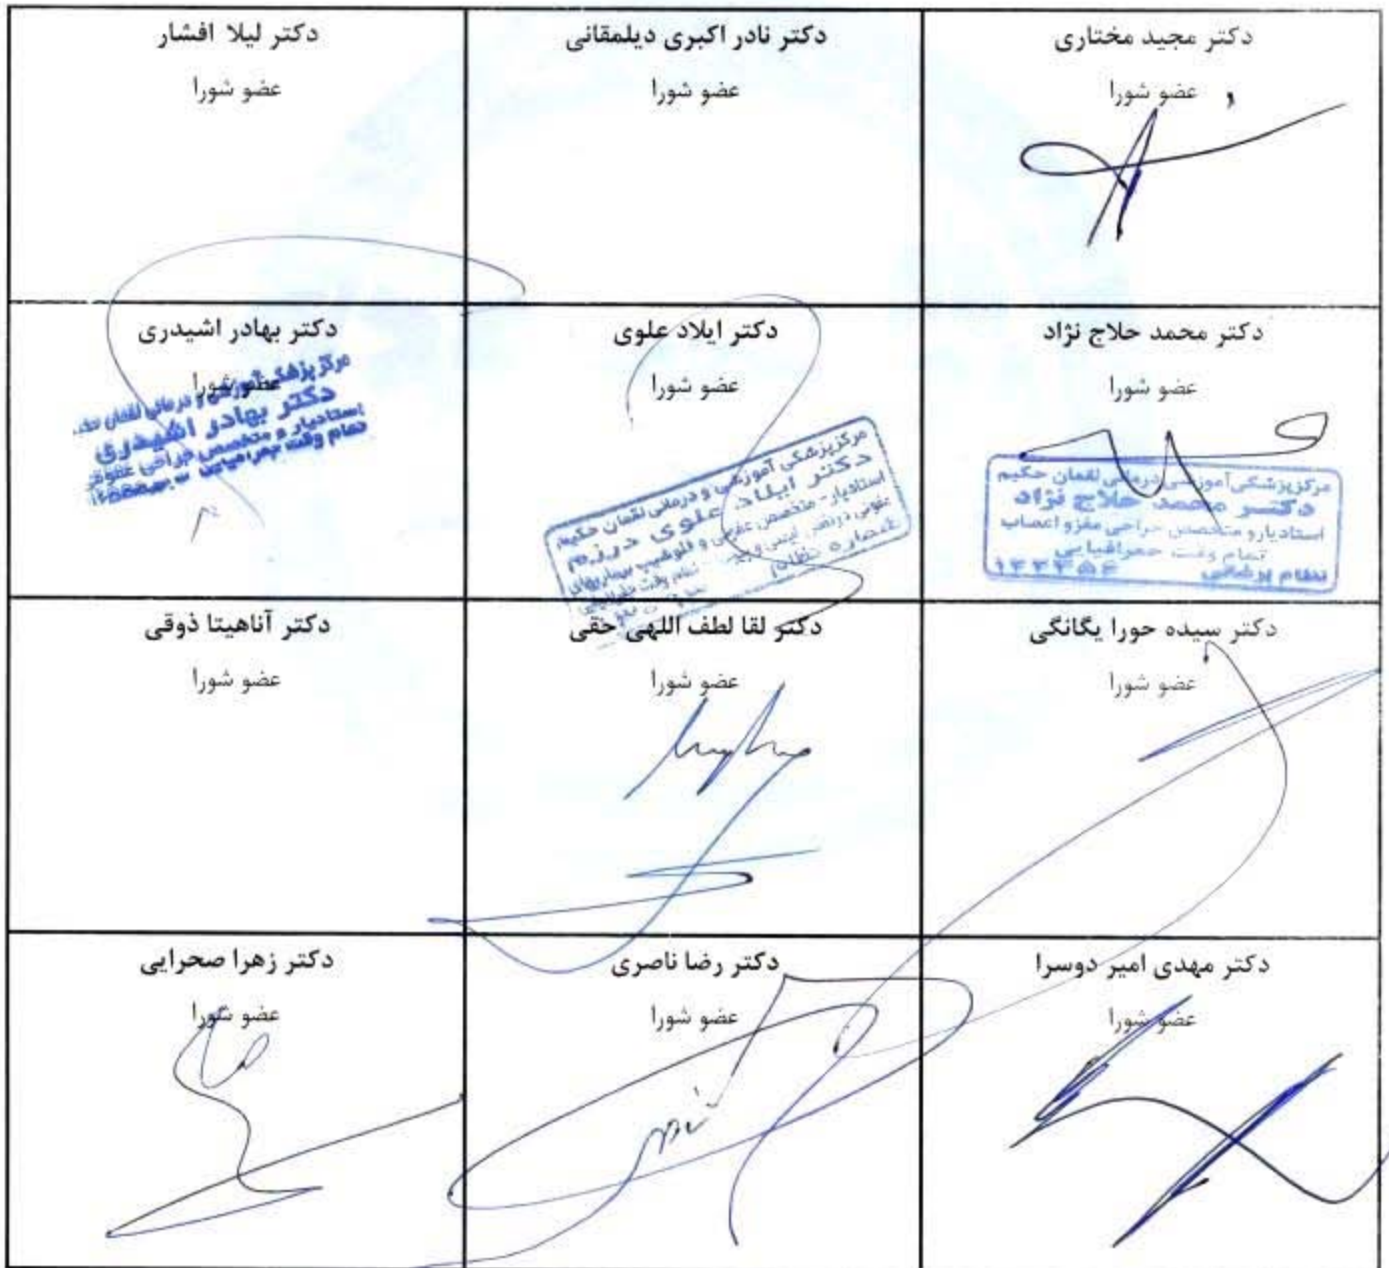 دکتر مجید مختاری
عضو شورا
دکتر نادر اکبری دیلمقانی
عضو شورا
دکتر لیلا افشار
عضو شورا
دکتر محمد حلاج نژاد
عضو شورا
مرکز پزشکی آموزشی درمانی لقمان حکیم
دکتر محمد حلاج نژاد
استادیار و متخصص جراحی مغز و اعصاب
تمام وقت جغرافیایی
نظام پزشکی
دکتر ایلاد علوی
عضو شورا
مرکز پزشکی آموزشی و درمانی لقمان حکیم
دکتر ایلاد علوی درزم
استادیار - متخصص عفونی و فلوشیپ بیماریهای
شماره نظام
دکتر بهادر اشیدری
عضو شورا
مرکز پزشکی آموزشی و درمانی لقمان
دکتر بهادر اشیدری
استادیار و متخصص جراحی
تمام وقت
دکتر سیده حورا یگانگی
عضو شورا
دکتر لقا لطف اللهی حقی
عضو شورا
دکتر آناهیتا ذوقی
عضو شورا
دکتر مهدی امیر دوسرا
عضو شورا
دکتر رضا ناصری
عضو شورا
دکتر زهرا صحرایی
عضو شورا